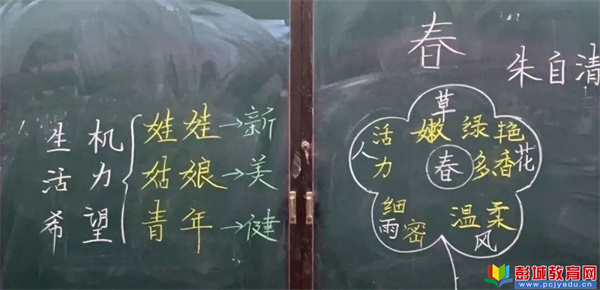 生机 娃娃→新
活力 姑娘→美
希望 青年→健
春
朱自清
草
嫩 绿
人 活力
春
艳 多 香 花
细 密 雨
温柔 风
彭城教育网
www.pcjyedu.cn